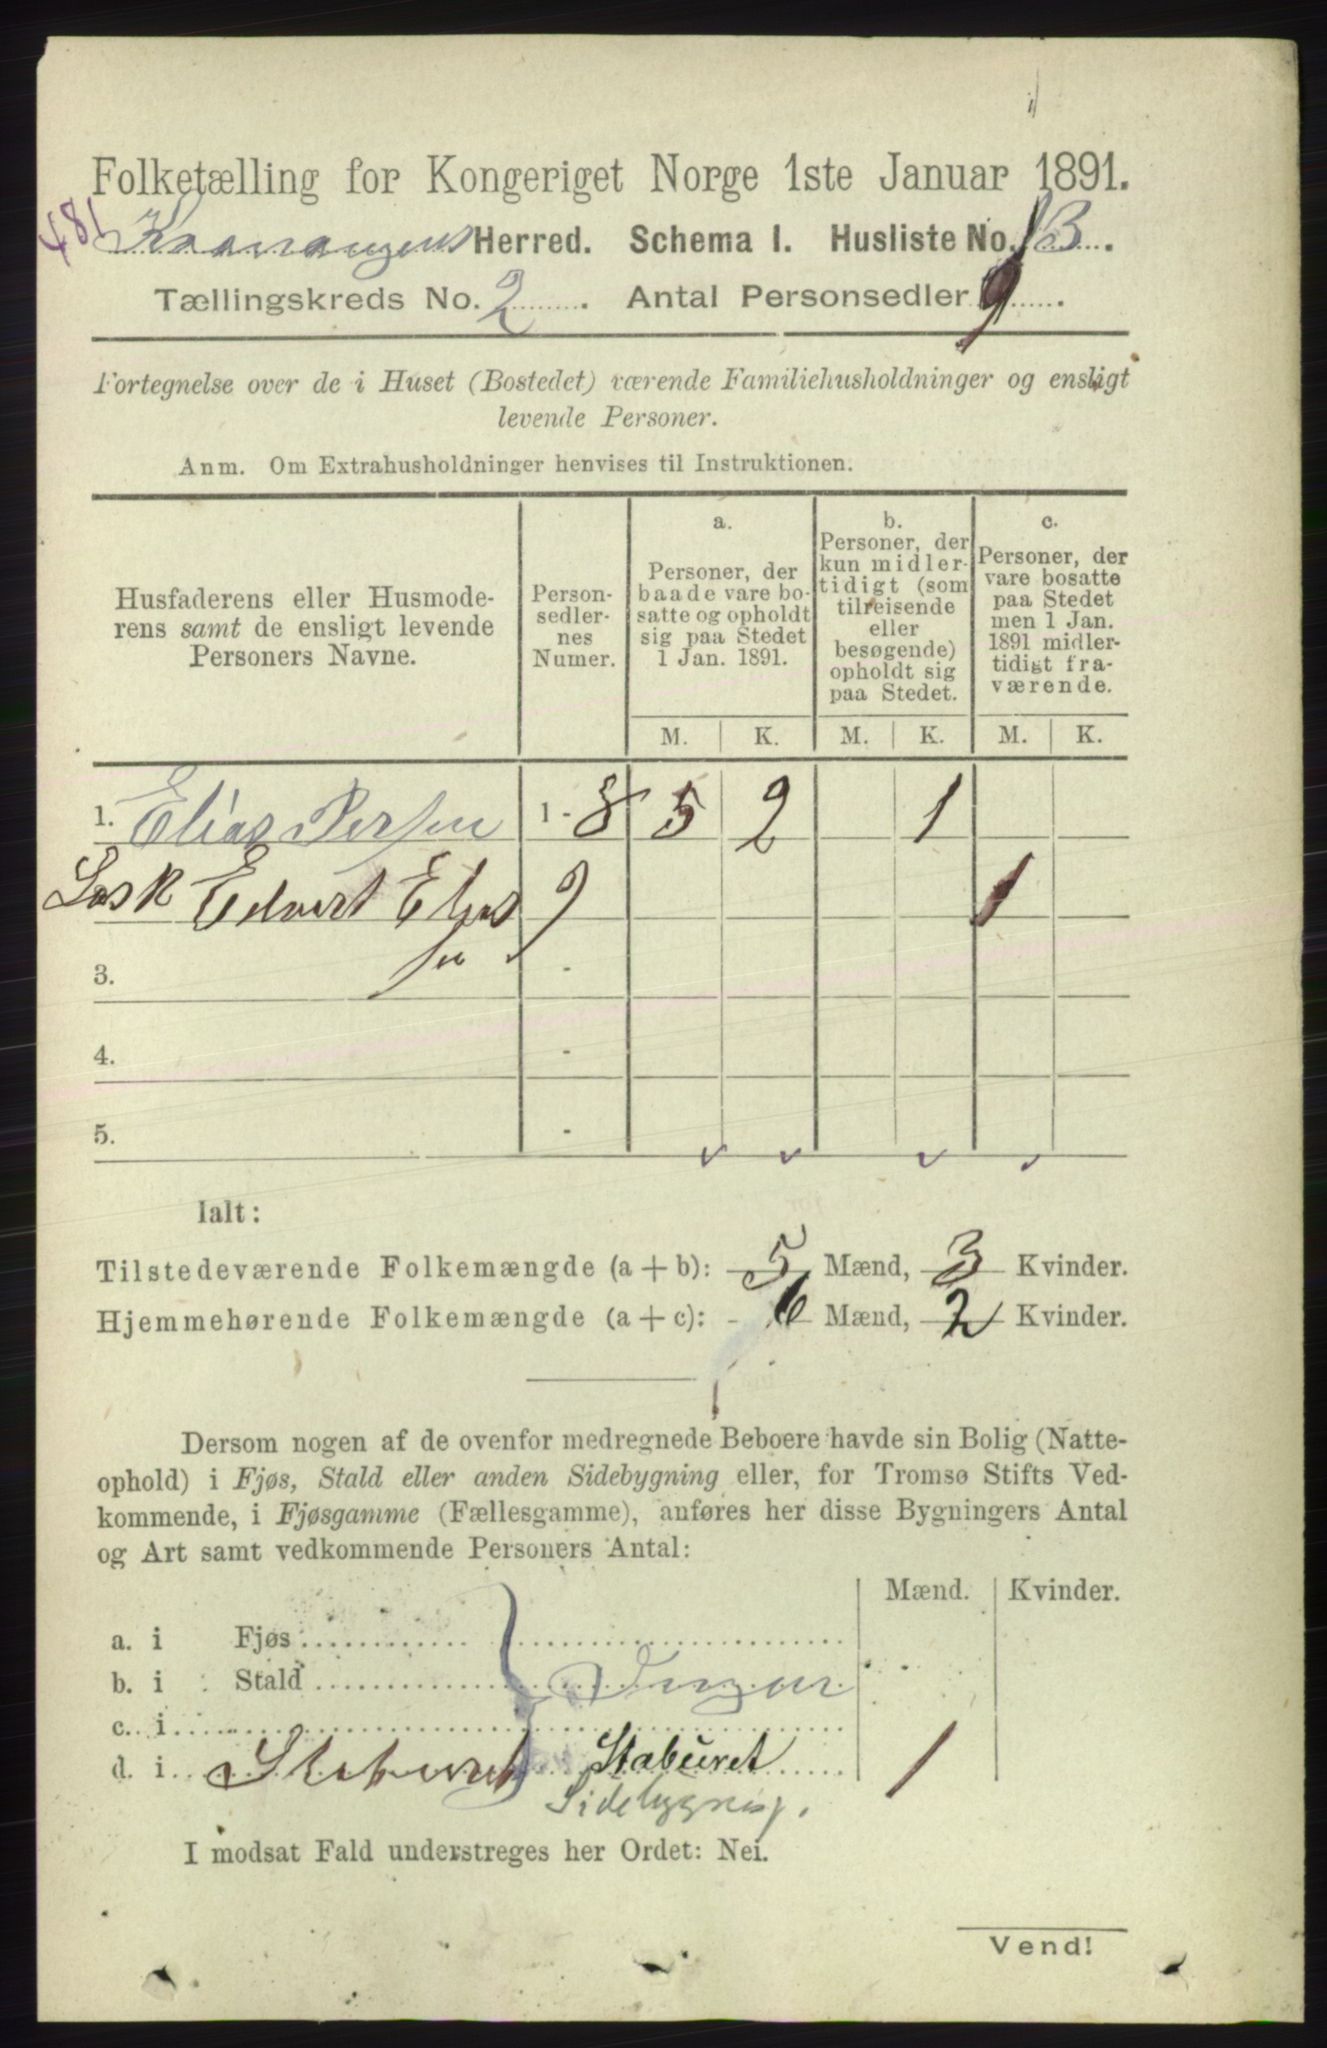 Folketælling for Kongeriget Norge 1ste Januar 1891.
481
Kvænangens Herred. Schema I. Husliste No. 13.
Tællingskreds No. 2. Antal Personsedler 9.
Fortegnelse over de i Huset (Bostedet) værende Familiehusholdninger og ensligt
levende Personer.
Anm. Om Extrahusholdninger henvises til Instruktionen.
Husfaderens eller Husmode-
rens samt de ensligt levende
Personers Navne.
Person-
sedler-
nes
Numer.
a.
Personer, der
baade vare bo-
satte og opholdt
sig paa Stedet
1 Jan. 1891.
b.
Personer, der
kun midler-
tidigt (som
tilreisende
eller
besøgende)
opholdt sig
paa Stedet.
c.
Personer, der
vare bosatte
paa Stedet
men 1 Jan.
1891 midler-
tidigt fra-
værende.
M. K. M. K. M. K.
1. Elias Persen 1 - 8 5 2 1
Edvart Elias 9 1
sen
3. -
4. -
5. -
Ialt:
Tilstedeværende Folkemængde (a + b): 5 Mænd, 3 Kvinder.
Hjemmehørende Folkemængde (a + c): 6 Mænd, 2 Kvinder.
Dersom nogen af de ovenfor medregnede Beboere havde sin Bolig (Natte-
ophold) i Fjøs, Stald eller anden Sidebygning eller, for Tromsø Stifts Ved-
kommende, i Fjøsgamme (Fællesgamme), anføres her disse Bygningers Antal
og Art samt vedkommende Personers Antal:
Mænd. Kvinder.
a. i Fjøs
b. i Stald Ingen
c. i
d. i Staburet Staburet 1
Sidebygning.
I modsat Fald understreges her Ordet: Nei.
Vend!